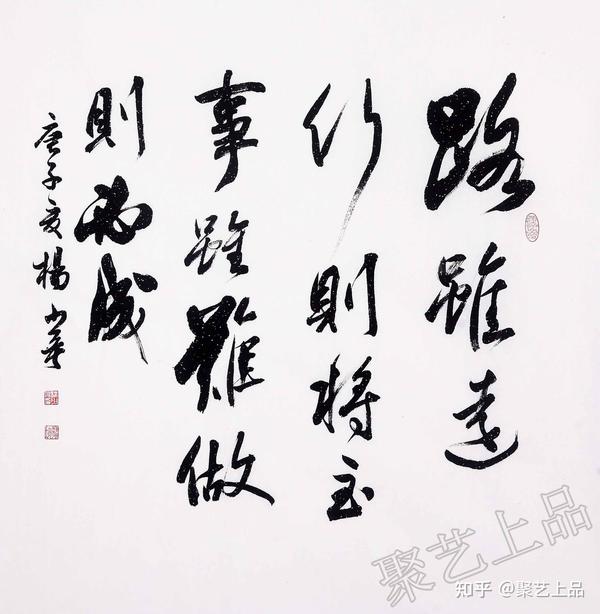 路雖遠
行則將至
事雖難做
則必成
庚子夏楊小華
聚艺上品
知乎 @聚艺上品